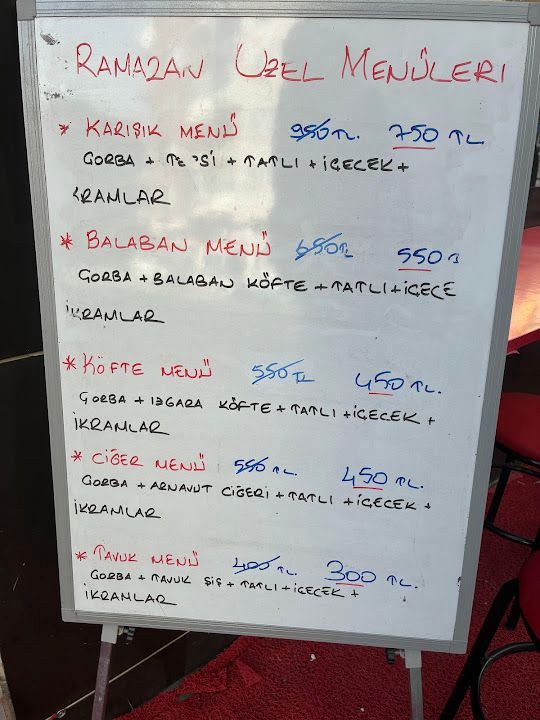 RAMAZAN ÖZEL MENÜLERİ
* KARIŞIK MENÜ 950 TL. 750 TL.
ÇORBA + TEPSİ + TATLI + İÇECEK +
İKRAMLAR
* BALABAN MENÜ 650 TL 550 T
ÇORBA + BALABAN KÖFTE + TATLI + İÇECE
İKRAMLAR
* KÖFTE MENÜ 550 TL 450 TL.
ÇORBA + IZGARA KÖFTE + TATLI + İÇECEK +
İKRAMLAR
* CİĞER MENÜ 550 TL. 450 TL.
ÇORBA + ARNAVUT CİĞERİ + TATLI + İÇECEK +
İKRAMLAR
* TAVUK MENÜ 400 TL. 300 TL.
ÇORBA + TAVUK ŞİŞ + TATLI + İÇECEK +
İKRAMLAR